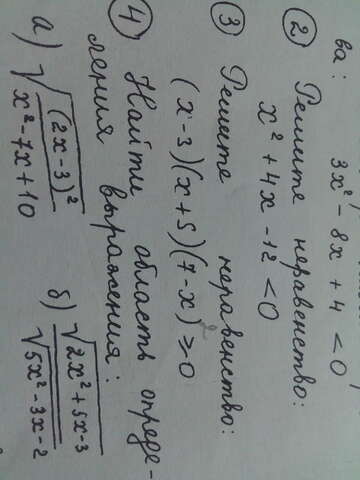 ва: 3x² - 8x + 4 < 0
② Решите неравенство:
x² + 4x - 12 < 0
③ Решите неравенство:
(x - 3)(x + 5)(7 - x) ≥ 0
④ Найти область опреде-
ления выражения:
а) √((2x - 3)² / (x² - 7x + 10)) б) √(2x² + 5x - 3) / √(5x² - 3x - 2)